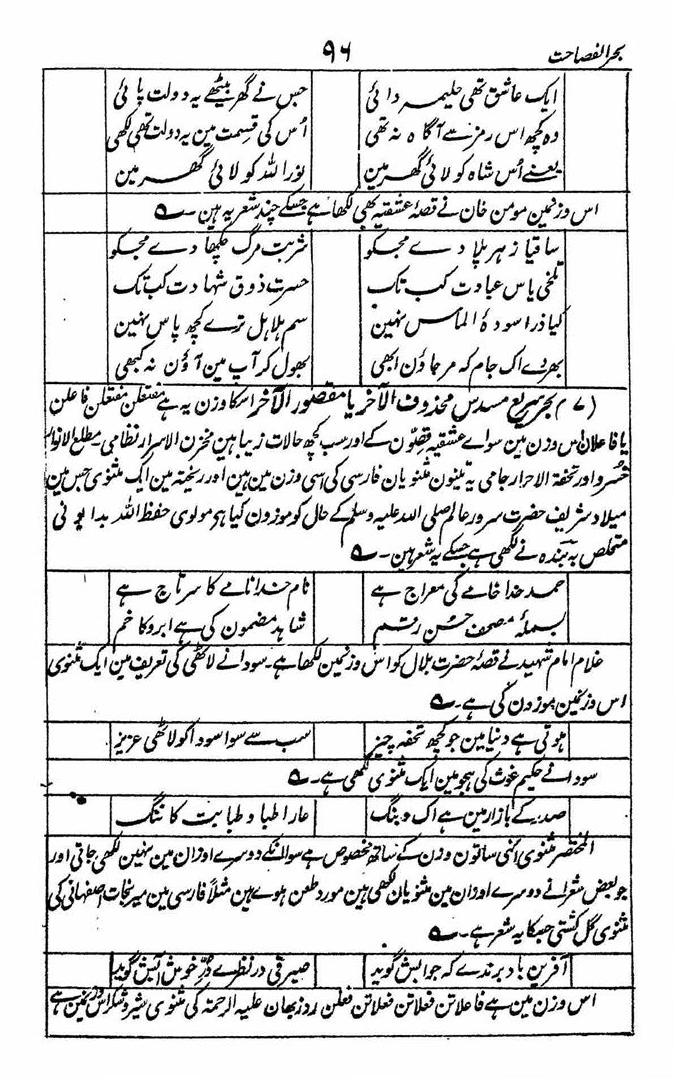 بحر الفصاحت
۹۶
ایک عاشق تھی حلیمہ دائی جس نے گھر بیٹھے یہ دولت پائی
وہ کچھ اس رمز سے آگاہ نہ تھی اُس کی قسمت مین یہ دولت تھی لکھی
یعنے اُس شاہ کو لائی گھر مین نور اللہ کو لائی گھر مین
اس وزنمین مومن خان نے قصۂ عشقیہ بھی لکھا ہے جسکے چند شعر یہ ہین۔ ؎
ساقیا زہر پلا دے مجکو شربت مرگ چکھا دے مجکو
تلخی یاس عبادت کب تک حسرت ذوق شہادت کب تک
کیا ذرا سودۂ الماس نہین سم ہلاہل ترے کچھ پاس نہین
بھر دے اک جام کہ مر جاؤن ابھی بھول کر آپ مین آؤن نہ کبھی
(۷) بحر سریع مسدس محذوف الآخر یا مقصور الآخر اسکا وزن یہ ہے مفتعلن مفتعلن فاعلن
یا فاعلان اس وزن مین سواے عشقیہ قصّون کے اور سب کچھ حالات زیبا ہین مخزن الاسرار نظامی۔ مطلع الانوار
خسرو اور تحفۃ الاحرار جامی یہ تینون مثنویان فارسی کی اسی وزن مین ہین اور ریختہ مین ایک مثنوی جس مین
میلاد شریف حضرت سرور عالم صلی اللہ علیہ وسلم کے حال کو موزون کیا ہی مولوی حفظ اللہ بدایونی
متخلص بہ بندہ نے لکھی ہے جسکے یہ شعر ہین۔ ؎
حمد خدا خامے کی معراج ہے نام خدا نامے کا سرتاج ہے
بسملۂ مصحف حُسن رقم شاہد مضمون کی ہے ابرو کا خم
غلام امام شہید نے قصۂ حضرت بلال کو اس وزنمین لکھا ہے۔ سودا نے لاٹھی کی تعریف مین ایک مثنوی
اس وزنمین موزون کی ہے۔ ؎
ہوتی ہے دنیا مین جو کچھ تحفہ چیز سب سے سوا سودا کو لاٹھی عزیز
سودا نے حکیم غوث کی ہجو مین ایک مثنوی لکھی ہے۔ ؎
صدر کے بازار مین ہے اک دبنگ عار اطبا و طبابت کا ننگ
المختصر مثنوی انہی ساتون وزن کے ساتھ مخصوص ہے سوا انکے دوسرے اوزان مین نہین لکھی جاتی اور
جو بعض شعرا نے دوسرے اوزان مین مثنویان لکھی ہین مورد طعن ہوے ہین مثلاً فارسی مین میر نجات اصفہانی کی
مثنوی گل کشتی جسکا یہ شعر ہے۔ ؎
آفرین باد برندے کہ جوابش گوید صیرفی در نظرے دُرِّ خوش آبش گوید
اس وزن مین ہے فاعلاتن فعلاتن فعلاتن فعلن روزبھان علیہ الرحمۃ کی مثنوی شیر و شکر اس وزنمین ہے